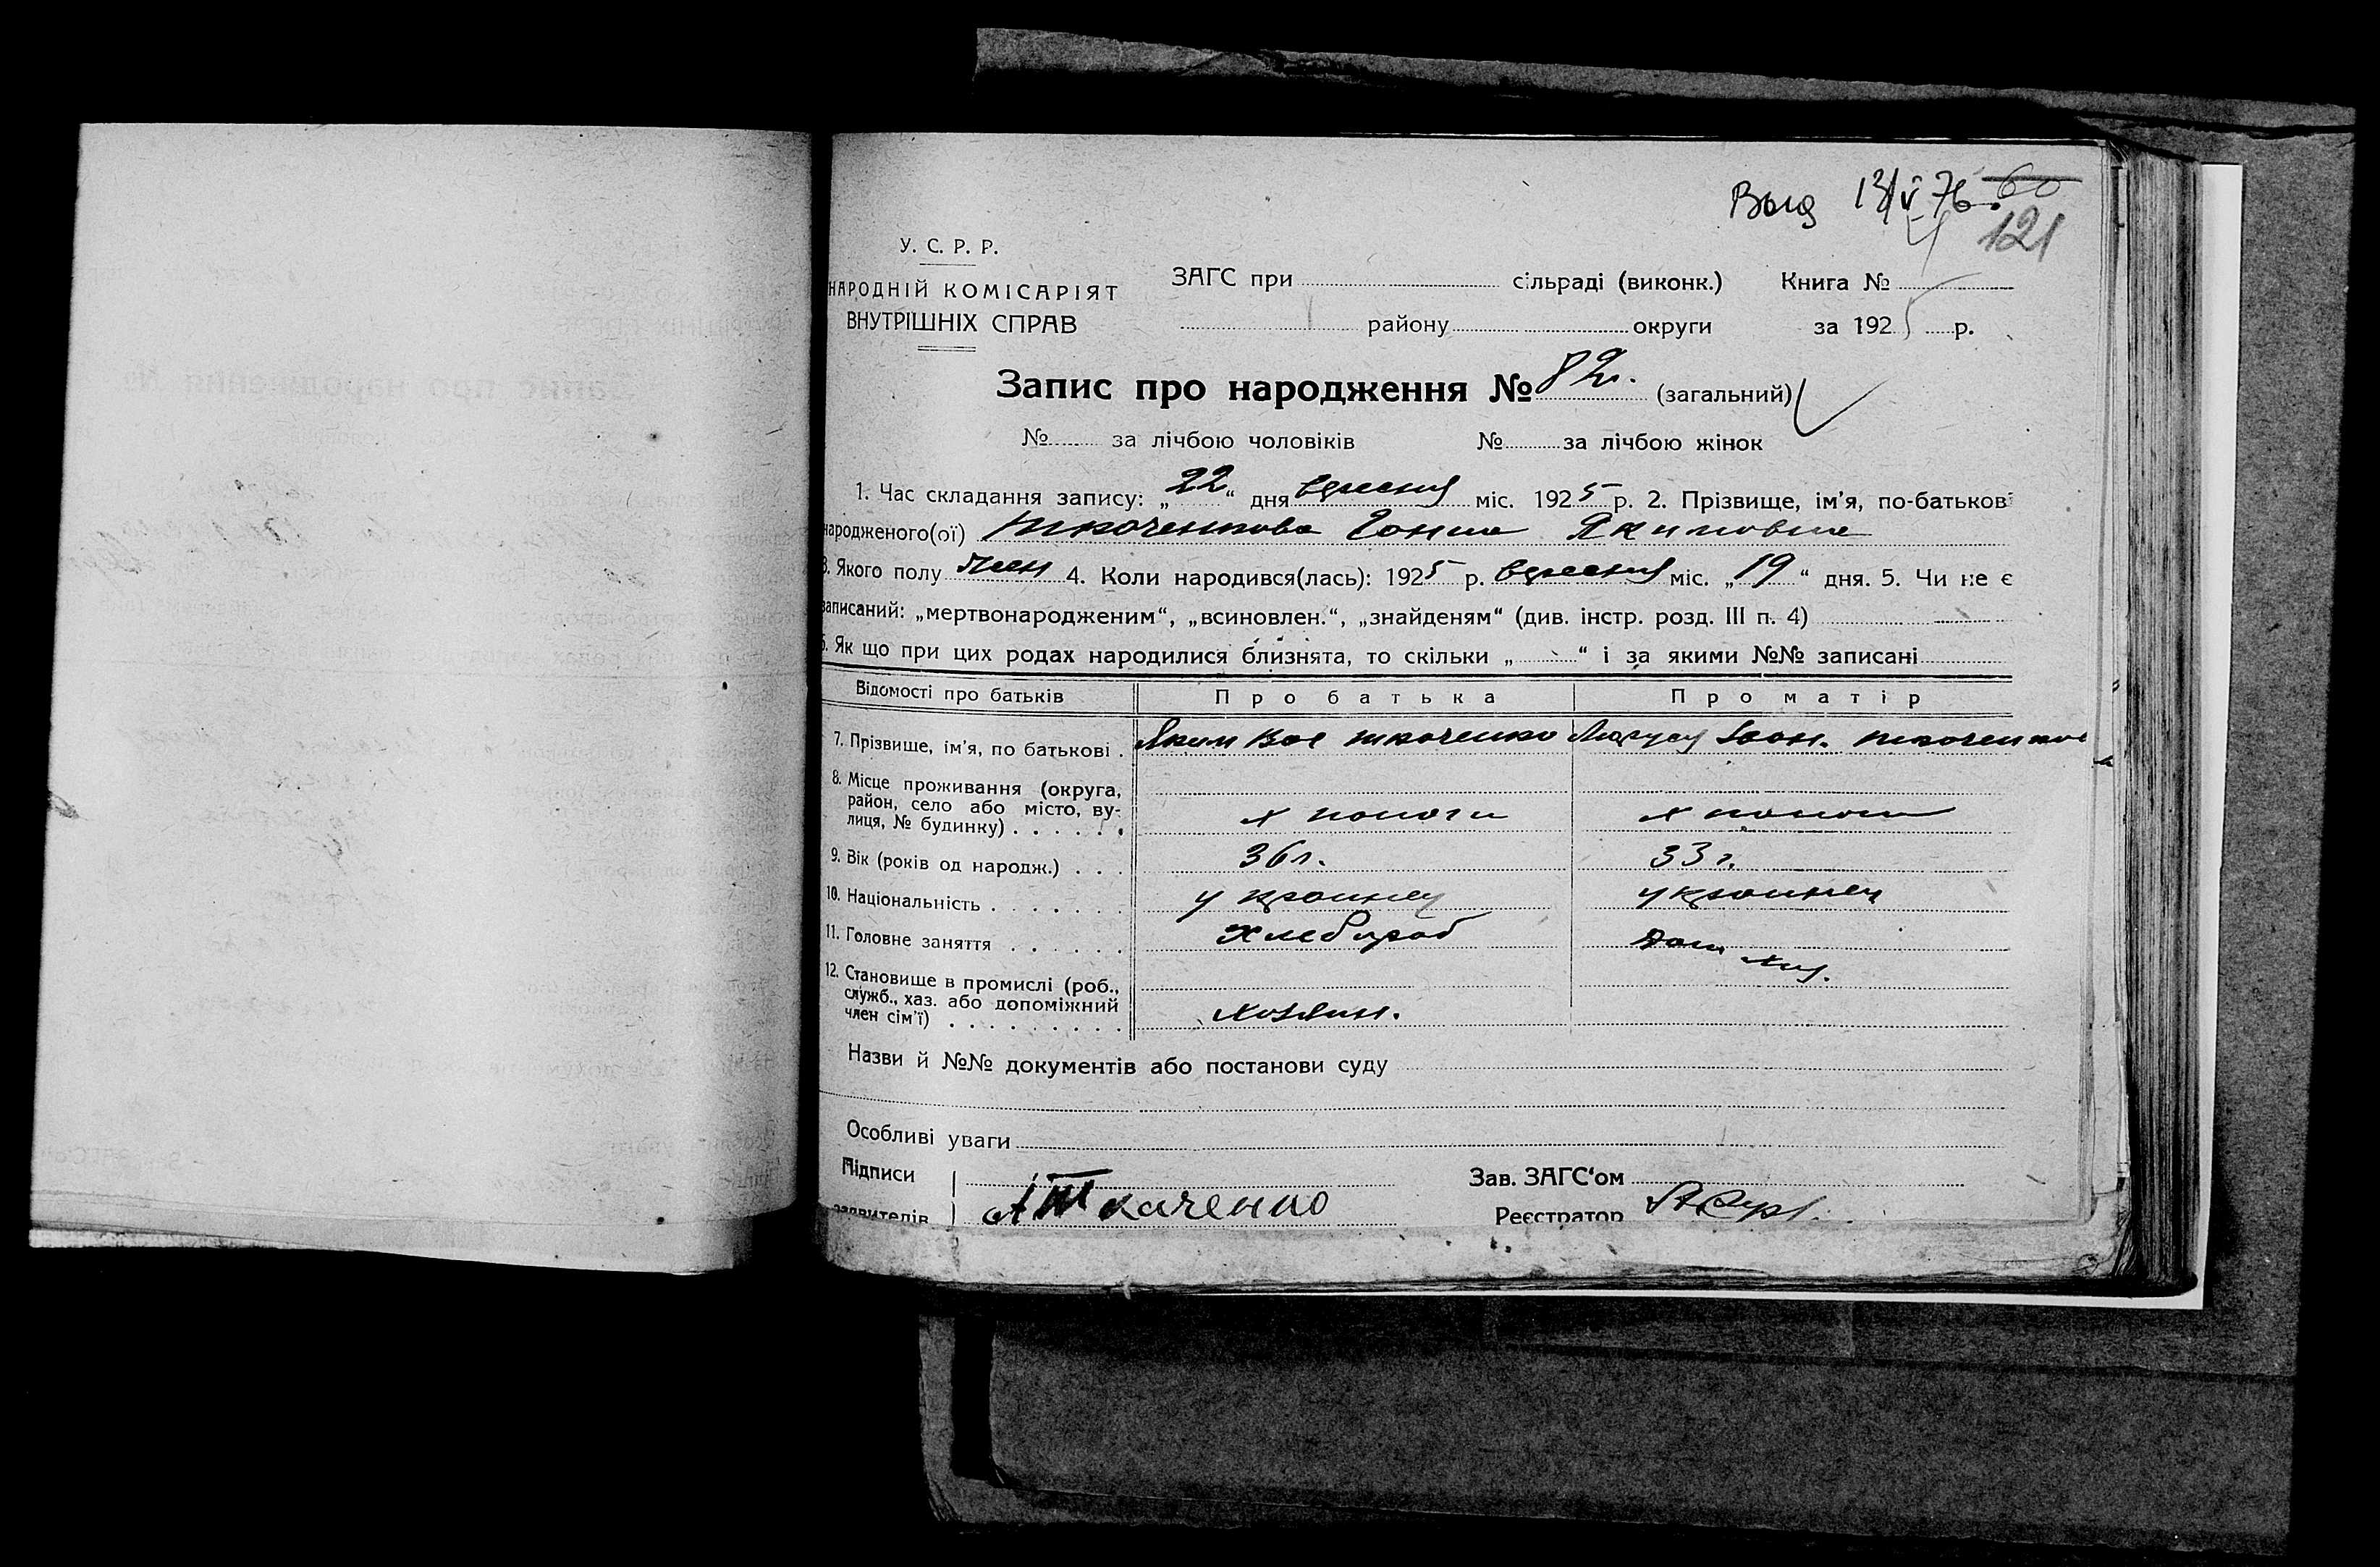 Выд 13/V 76. 60
121
У. С. Р. Р.
НАРОДНІЙ КОМІСАРІЯТ
ВНУТРІШНІХ СПРАВ
ЗАГС при сільраді (виконк.) Книга №
району округи за 1925 р.
Запис про народження № 82. (загальний)
№ за лічбою чоловіків № за лічбою жінок
1. Час складання запису: „22“ дня вресня міс. 1925 р. 2. Прізвище, ім’я, по-батькові
народженого(ої) Ткаченкова Якимовна
3. Якого полу жен 4. Коли народився(лась): 1925 р. вресня міс. „19“ дня. 5. Чи не є
записаний: „мертвонародженим“, „всиновлен.“, „знайденям“ (див. інстр. розд. III п. 4)
6. Як що при цих родах народилися близнята, то скільки „ “ і за якими №№ записані
Відомості про батьків Про батька Про матір
7. Прізвище, ім’я, по батькові . Яким Вас Ткаченко Ткаченкова
8. Місце проживання (округа,
район, село або місто, ву-
лиця, № будинку) . . . . . .
9. Вік (років од народж.) . . . 36 л. 33 г.
10. Національність . . . . . . . украинец украинец
11. Головне заняття . . . . . . Хлебороб дом
хоз.
12. Становище в промислі (роб.,
служб., хаз. або допоміжний
член сім’ї) . . . . . . . . . хозяин.
Назви й №№ документів або постанови суду
Особливі уваги
Підписи Зав. ЗАГС‘ом
заявителів Ткаченко Реєстратор